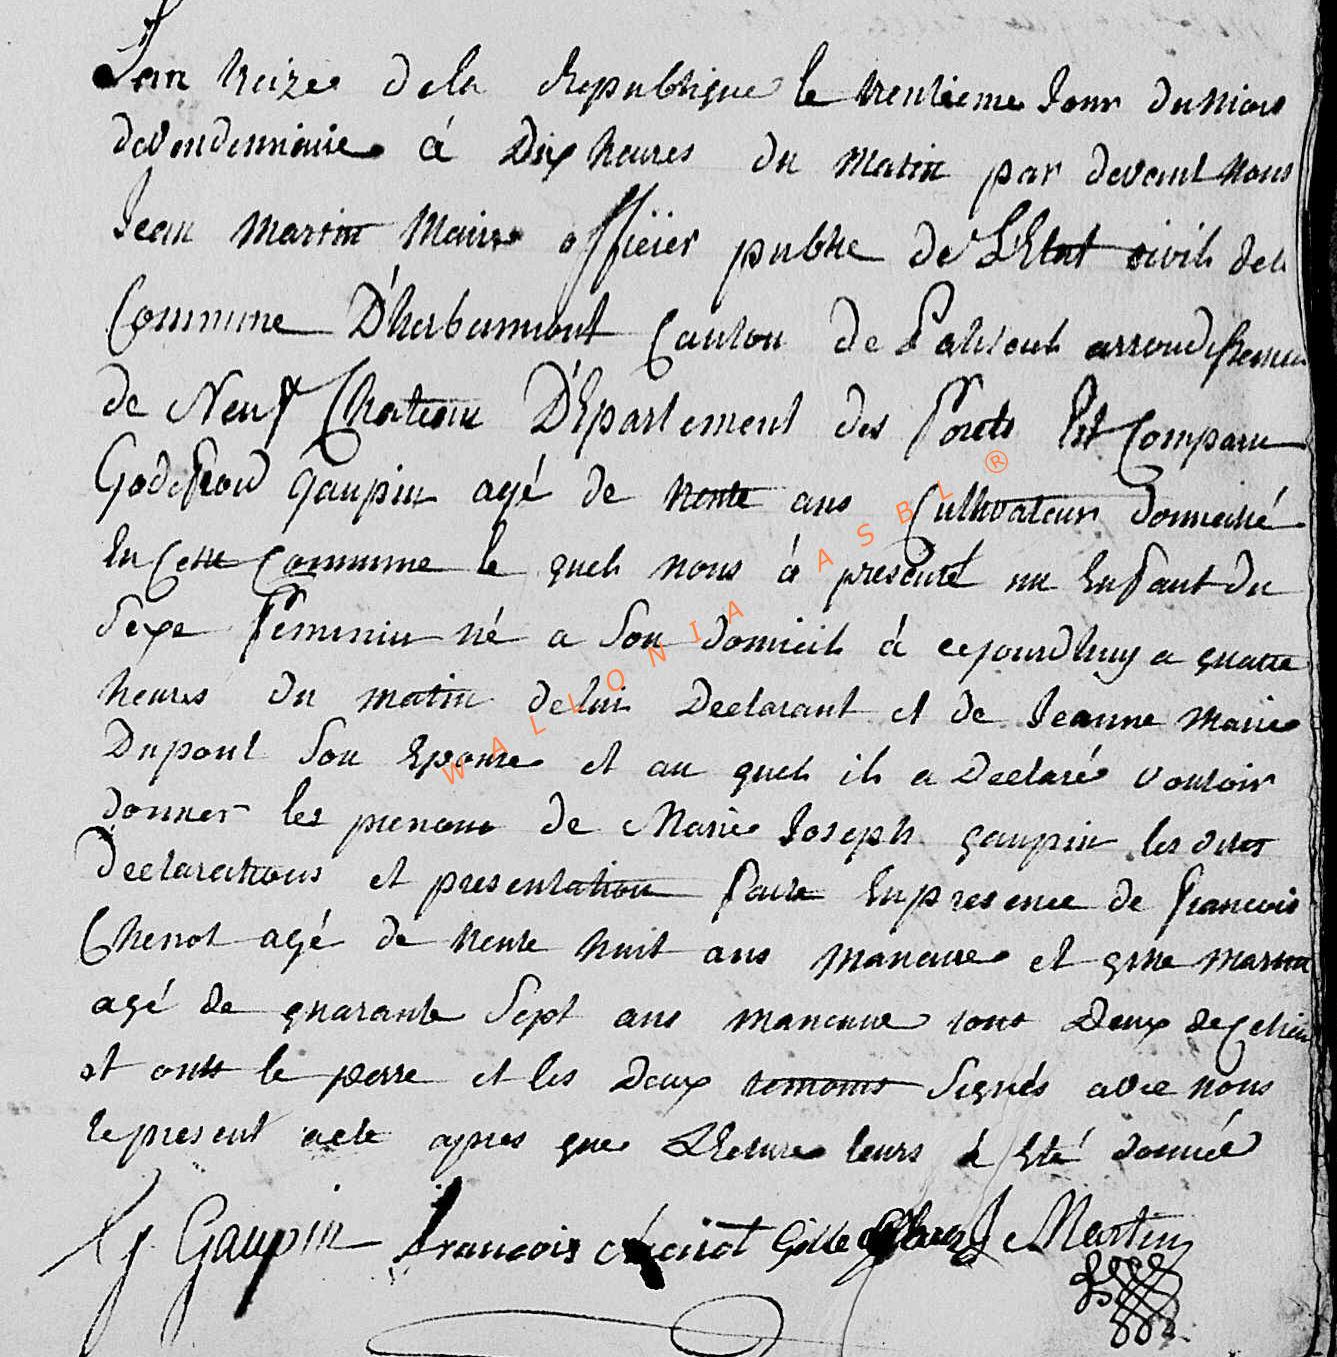 L'an treize dela Republique le trentieme Jour du mois
devendemiaire à Dix heures du matin par devant nous
Jean Martin Maire officier public de L'Etat civil dela
Commune D'herbeumont Canton de Paliseul arrondissement
de Neuf Chateau D'Epartement des Forets Est Comparu
Godefroid gaupin agé de trente ans Cultivateur Domicilié
En Cette Commune le quel nous à presenté un Enfant Du
Sexe Feminin né a Son domicil à cejourdhuy a quatre
heures du matin delui Declarant et de Jeanne Marie
Dupont Son Epouse et au quel il a Declaré vouloir
donner les prenoms de Marie Joseph gaupin les dites
Declarations et presentation Faite En presence de Francois
Chenot agé de trente huit ans et gille martin
agé de quarante Sept ans tous Deux de
et onts le perre et les Deux temoins Signés avec nous
le present acte apres que Lecture leurs à Eté donnée
G Gaupin francois chenot Gille J Martin
WALLONIA ASBL ®